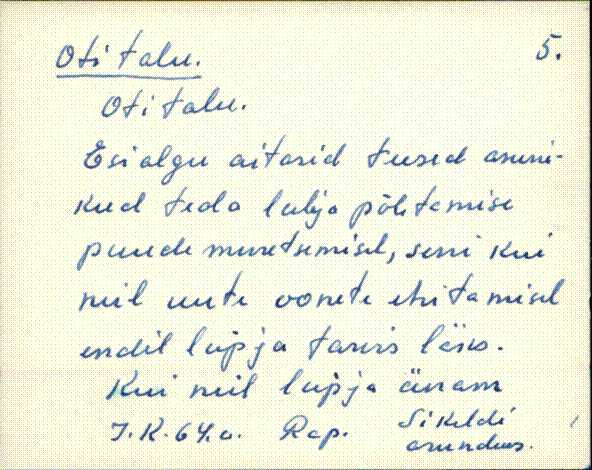 Oti talu. 5.
Oti talu.
Esialgu aitasid teised asuni-
kud teda lubja põletamise
puude muretsemisel, seni kui
neil uute oonete ehitamisel
endil lupja tarvis läks.
Kui neil lupja änam
J.K. 64.a. Rap. Sikeldi
asundus.